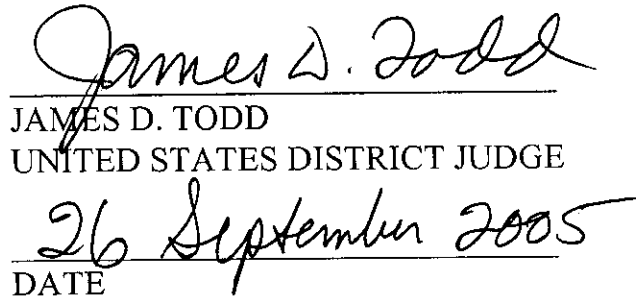 James D. Todd
JAMES D. TODD
UNITED STATES DISTRICT JUDGE
26 September 2005
DATE